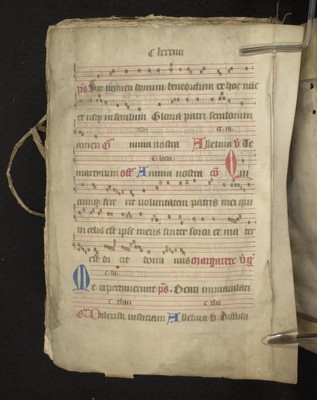 C lxxviii
ps Sit nomen domini benedictum ex hoc nunc
et usqz in seculum Gloria patri seculorum
amen G nima nostra Alleluia v Te
martyrum off Anima nostra co Qui
cumqz fece rit voluntatem patris mei qui
in celis est ipse meus frater soror et ma ter
est di cit domi nus Margarete vgis
Me expectaverunt ps Beati immaculati
Gr Dilexisti iusticiam Alleluia v Diffusa